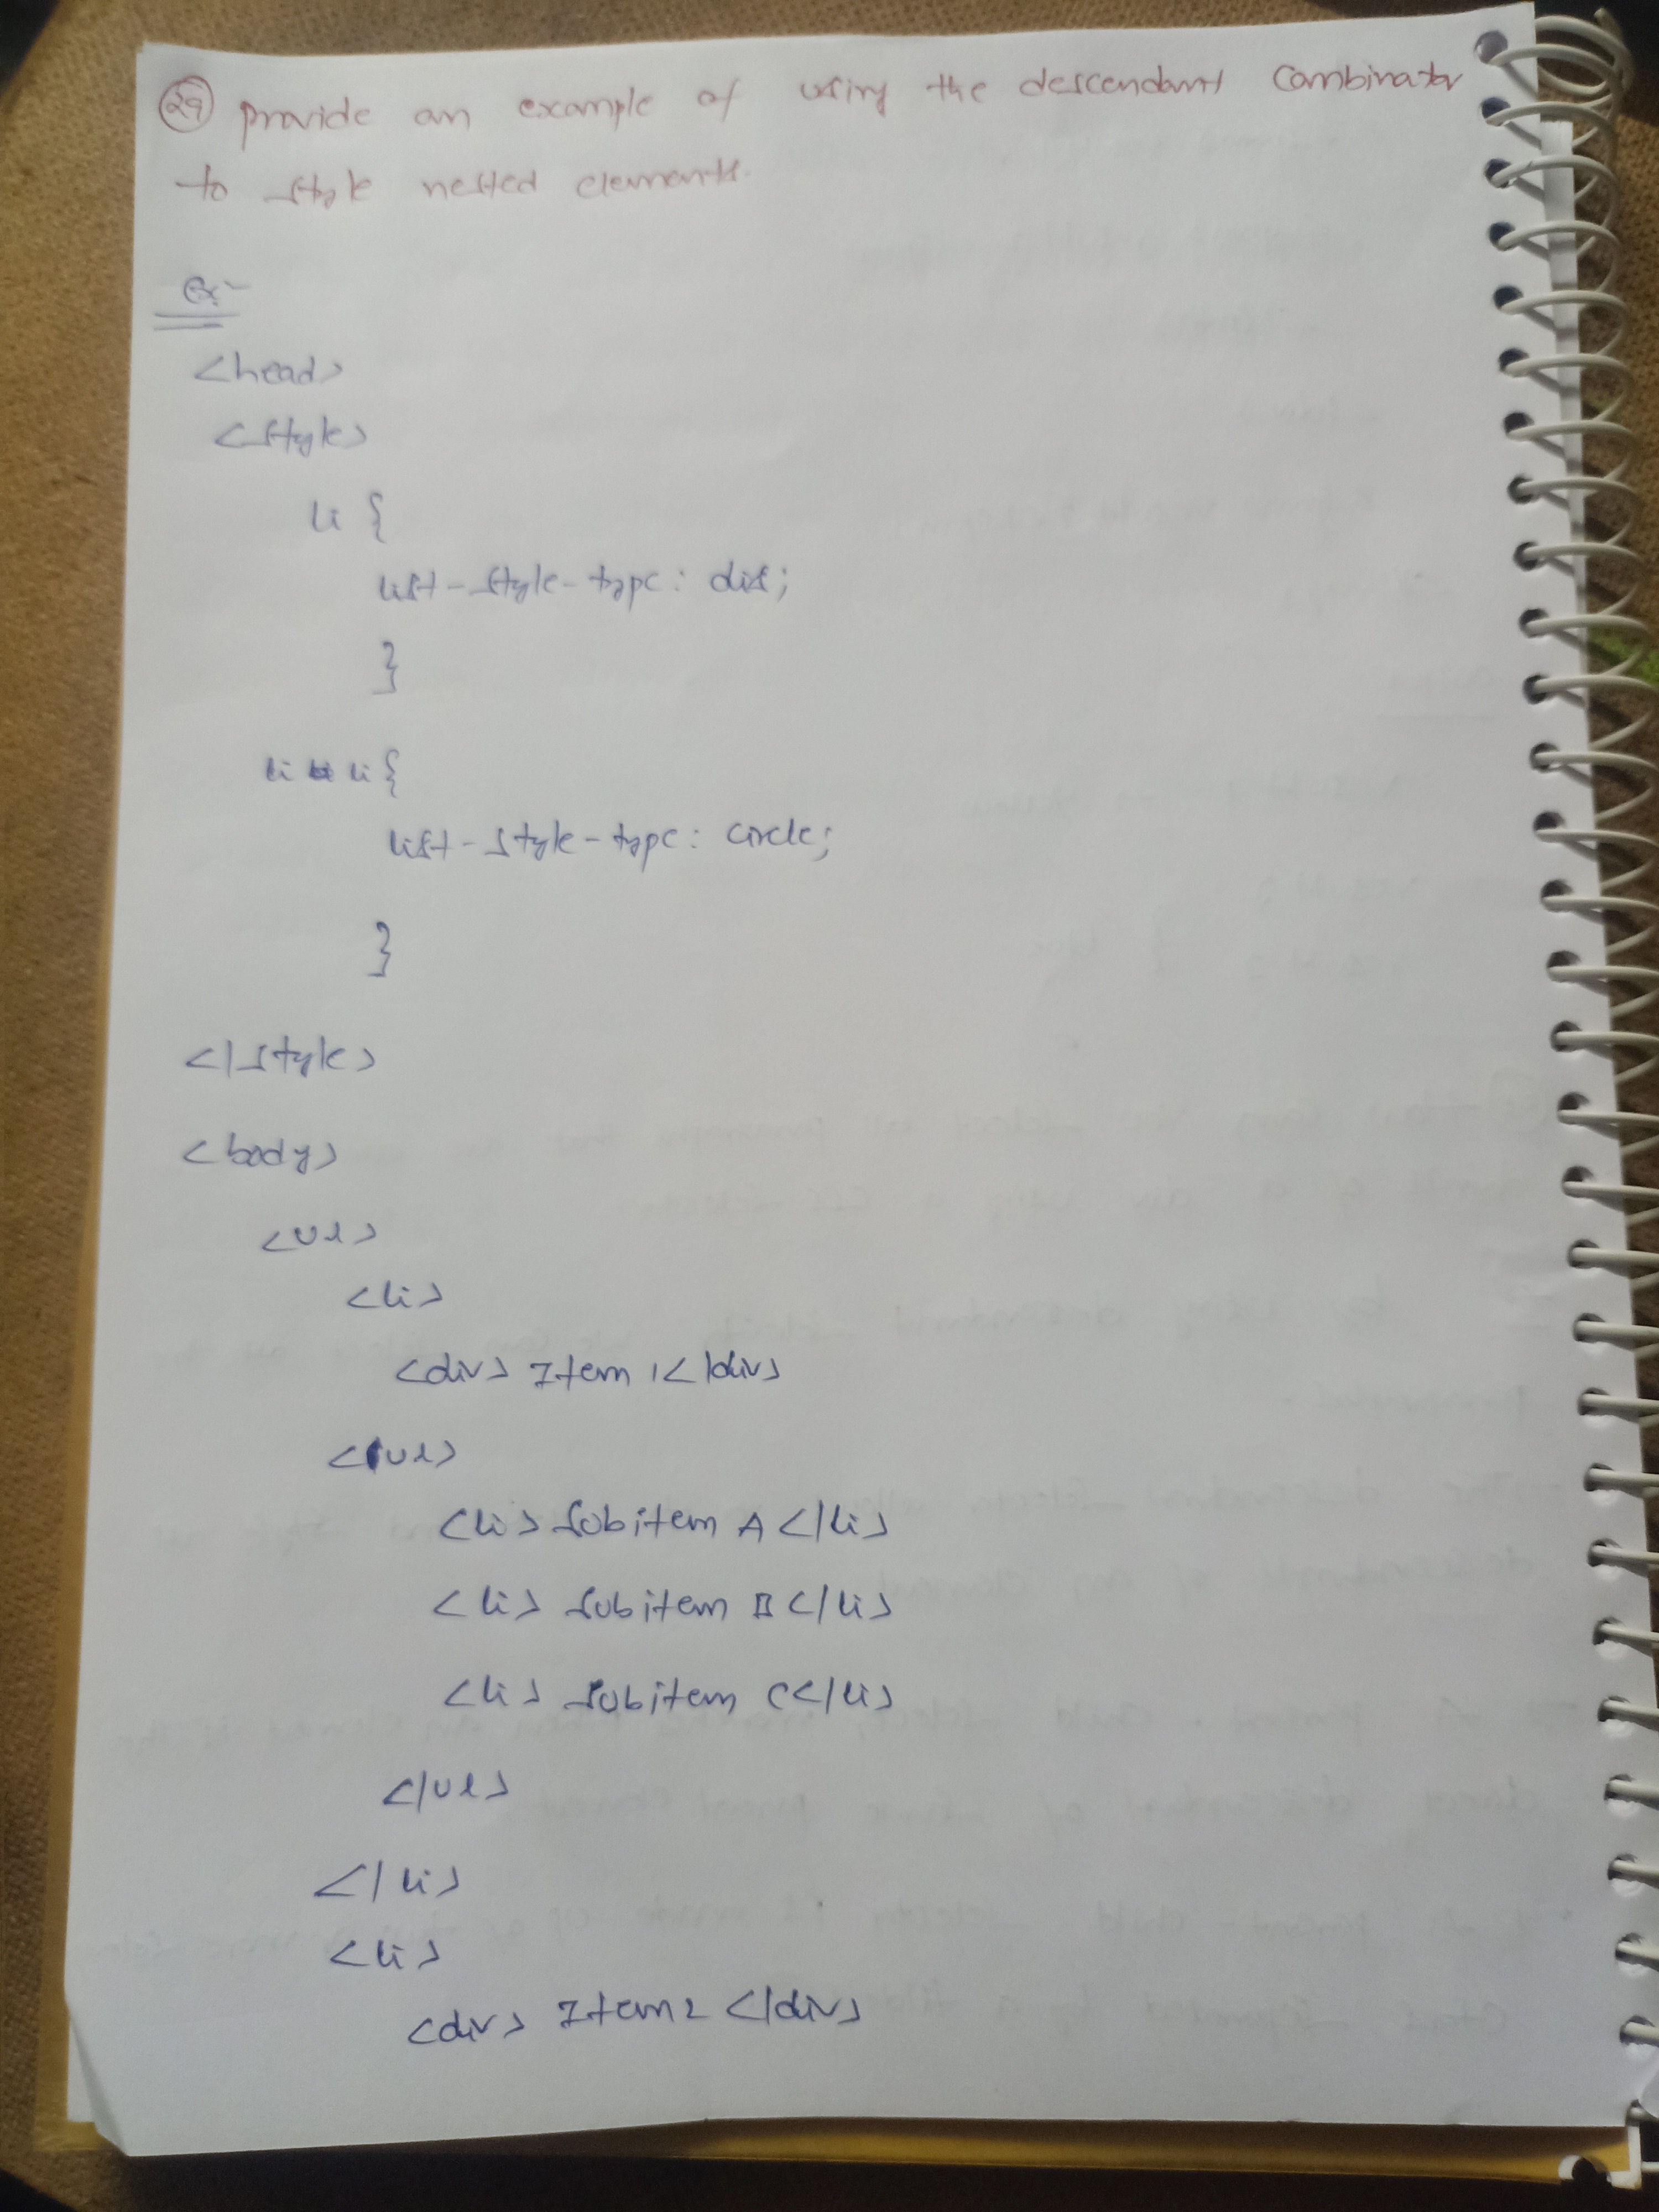 29 provide an example of using the descendant combinator
to style nested elements.
Ex:-
<head>
<style>
li {
list-style-type: dis;
}
li li {
list-style-type: circle;
}
</style>
<body>
<ul>
<li>
<div> Item 1</div>
<ul>
<li> Subitem A </li>
<li> Subitem B </li>
<li> Subitem C</li>
</ul>
</li>
<li>
<div> Item 2 </div>